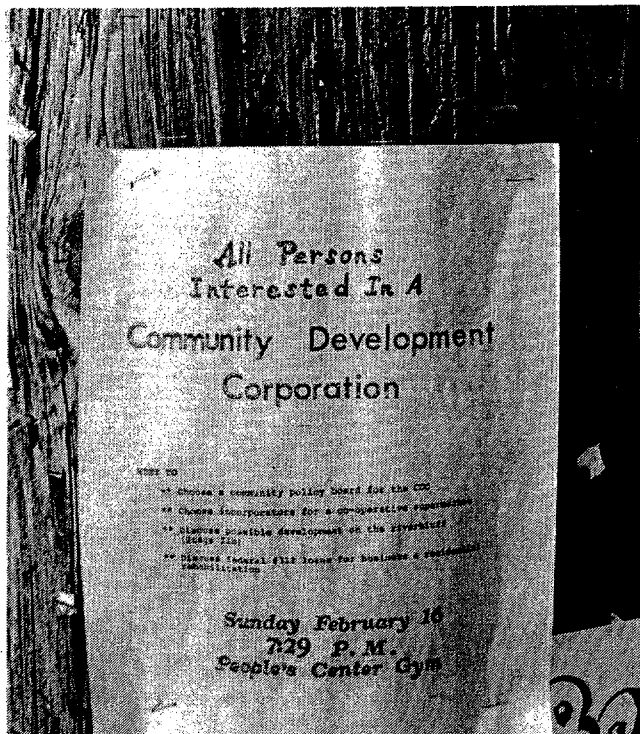 All Persons
Interested In A
Community Development
Corporation
MEET TO
** Choose a community policy board for the CDC
** Choose incorporators for a co-operative
** Discuss possible development on the riverbluff
** Discuss federal loans for business & residential
rehabilitation
Sunday February 16
7:29 P.M.
People's Center Gym